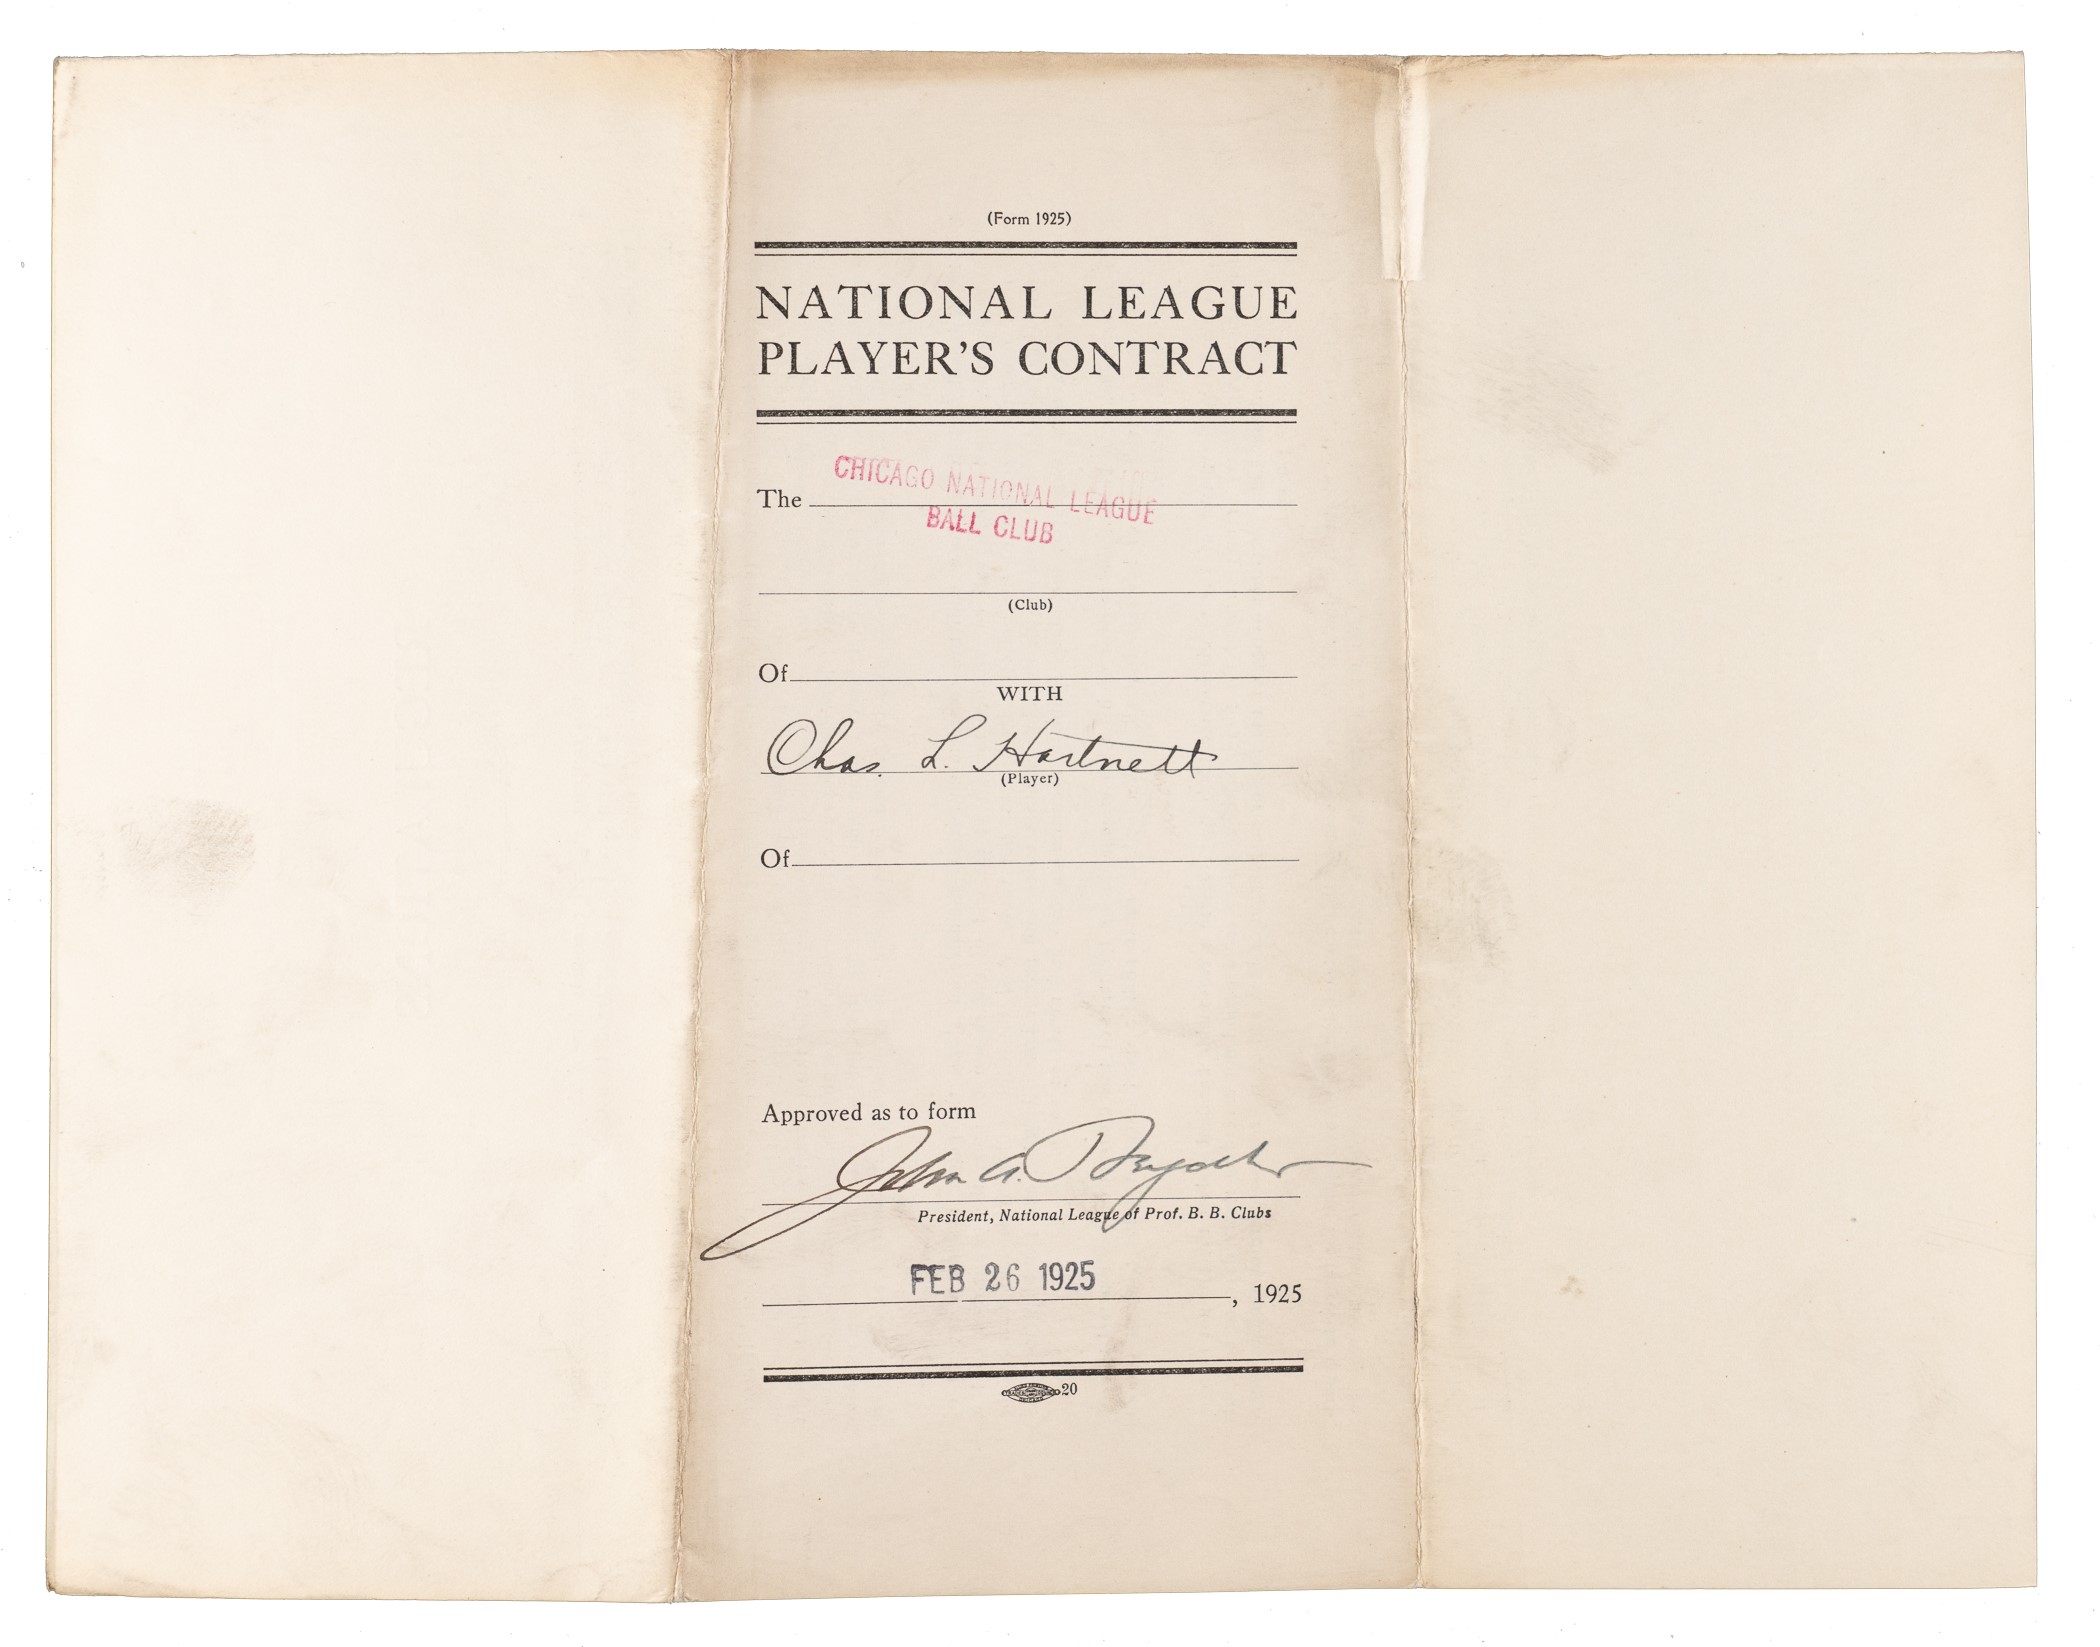 (Form 1925)
NATIONAL LEAGUE
PLAYER'S CONTRACT
The CHICAGO NATIONAL LEAGUE
BALL CLUB
(Club)
Of
WITH
Chas. L. Hartnett
(Player)
Of
Approved as to form
John A. Heydler
President, National League of Prof. B. B. Clubs
FEB 26 1925, 1925
20